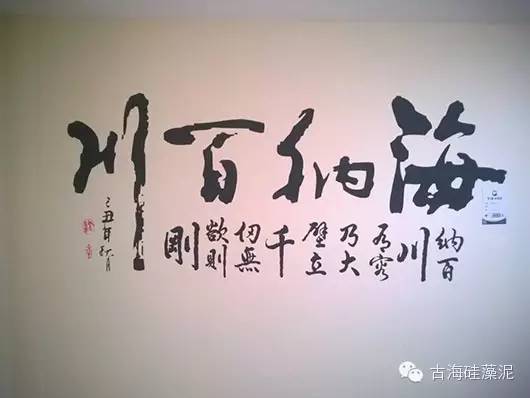 海纳百川
纳百
川
有容
乃大
壁立
千
仞無
欲則
剛
己丑年秋月
古海硅藻泥